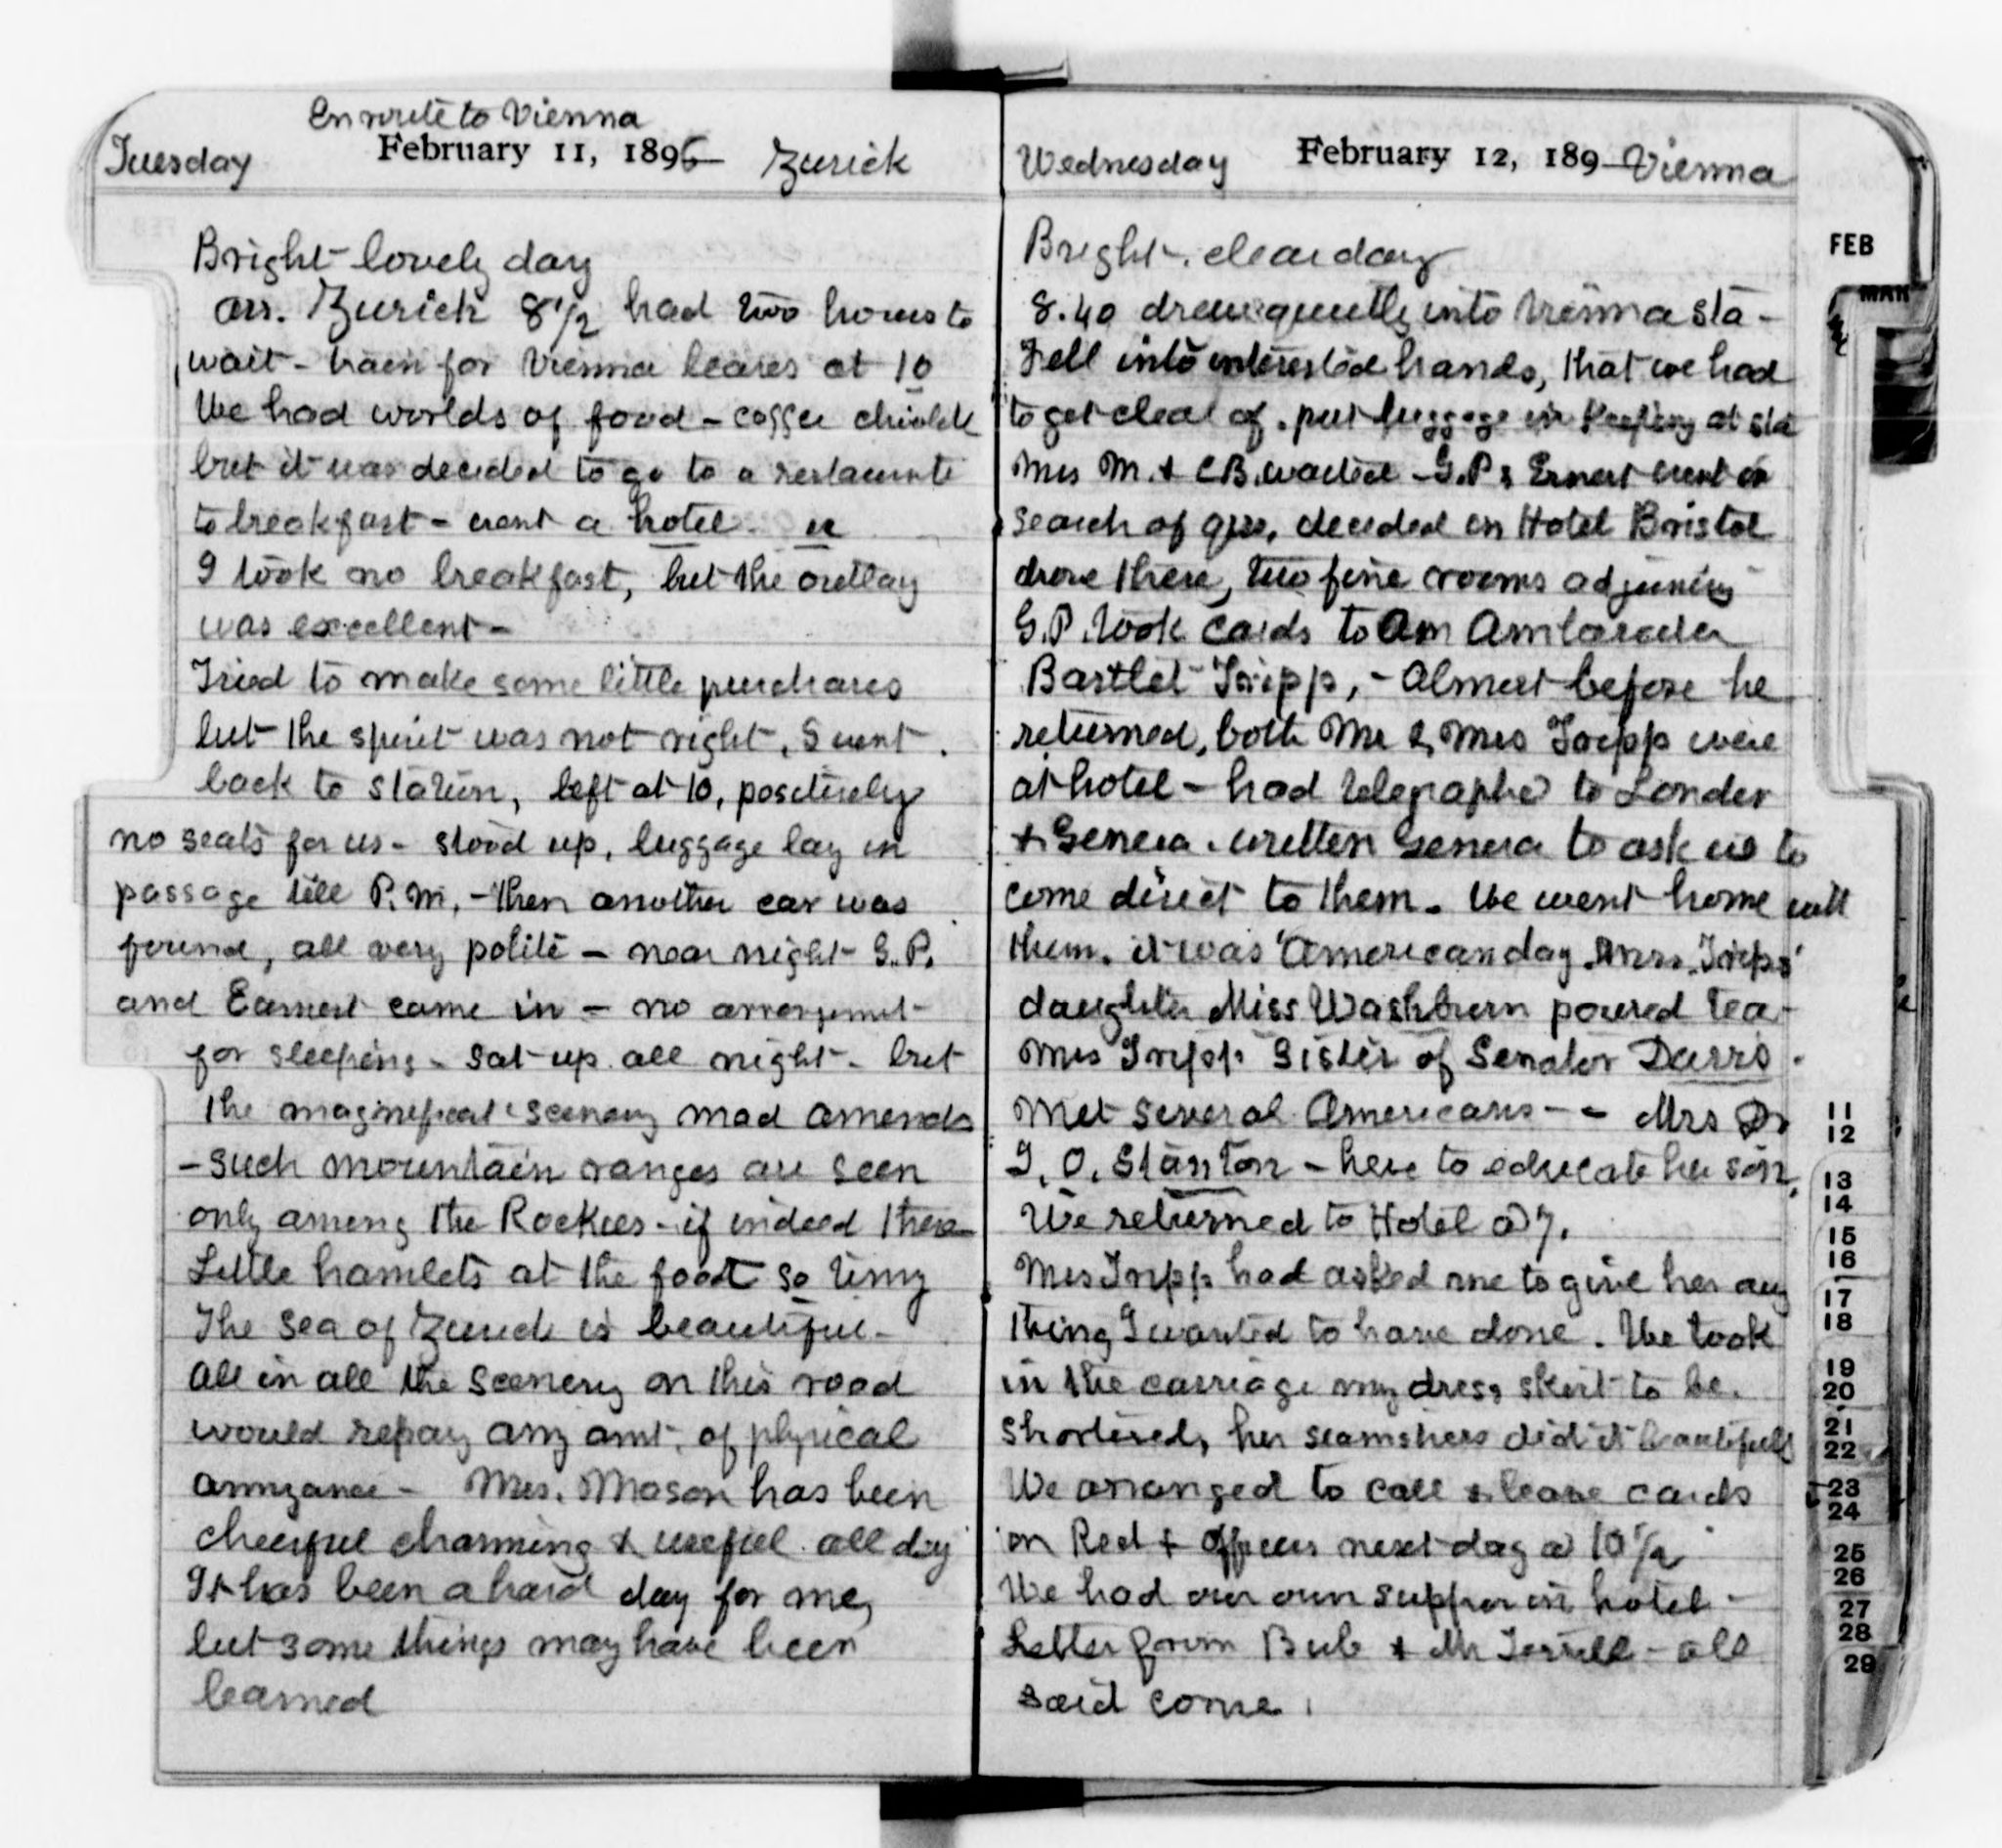 Enroute to Vienna
Tuesday February 11, 1896 Zurick
Bright lovely day
arr. Zurich 8 1/2 had two hours to
wait - train for Vienna leaves at 10
We had worlds of food - coffee
but it was decided to go to a restaurante
to breakfast - went a hotel
I took no breakfast, but the outlay
was excellent -
Tried to make some little purchases
but the spirit was not right, & went
back to station, left at 10, positively
no seats for us - stood up, luggage lay in
passage till P.M. - then another car was
found, all very polite - near night G.P.
and Earnest came in - no
for sleeping - sat up all night - but
the scenery mad amends
- such mountain ranges are seen
only among the Rockies - if indeed there
Little hamlets at the foot so tiny
The sea of Zurich is beautiful -
all in all the scenery on this road
would repay any amt. of physical
Mrs. Mason has been
cheerful charming & useful all day
It has been a hard day for me,
but some things may have been
learned
Wednesday February 12, 189 Vienna
Bright. clear day
8.40 drew quietly into Vienna sta -
Fell into interested hands, that we had
to get clear of. put luggage in keeping at sta
Mrs M. & CB. waited - G.P & Ernest went in
search of qrs, decided on Hotel Bristol
drove there, two fine rooms adjoining
G.P. took cards to Am
Bartlet Tripp, - Almost before he
returned, both Mr & Mrs Tripp were
at hotel - had telegraphed to London
& Geneva. written Geneva to ask us to
come direct to them. We went home with
them. it was 'American day. Mrs. Tripps'
daughter Miss Washburn poured tea -
Mrs Tripp Sister of Senator
Met several Americans - - Mrs Dr
J. O. Stanton - here to educate her son,
We returned to Hotel @ 7.
Mrs Tripp had asked me to give her any
thing I wanted to have done. We took
in the carriage my dress skirt to be
her seamstress did it beautifully
We arranged to call & leave cards
on Red + Officers next day @ 10 1/2
We had our own supper in hotel -
Letter from Bub & Mr Terrell - all
said come.
FEB
MAR
11
12
13
14
15
16
17
18
19
20
21
22
23
24
25
26
27
28
29